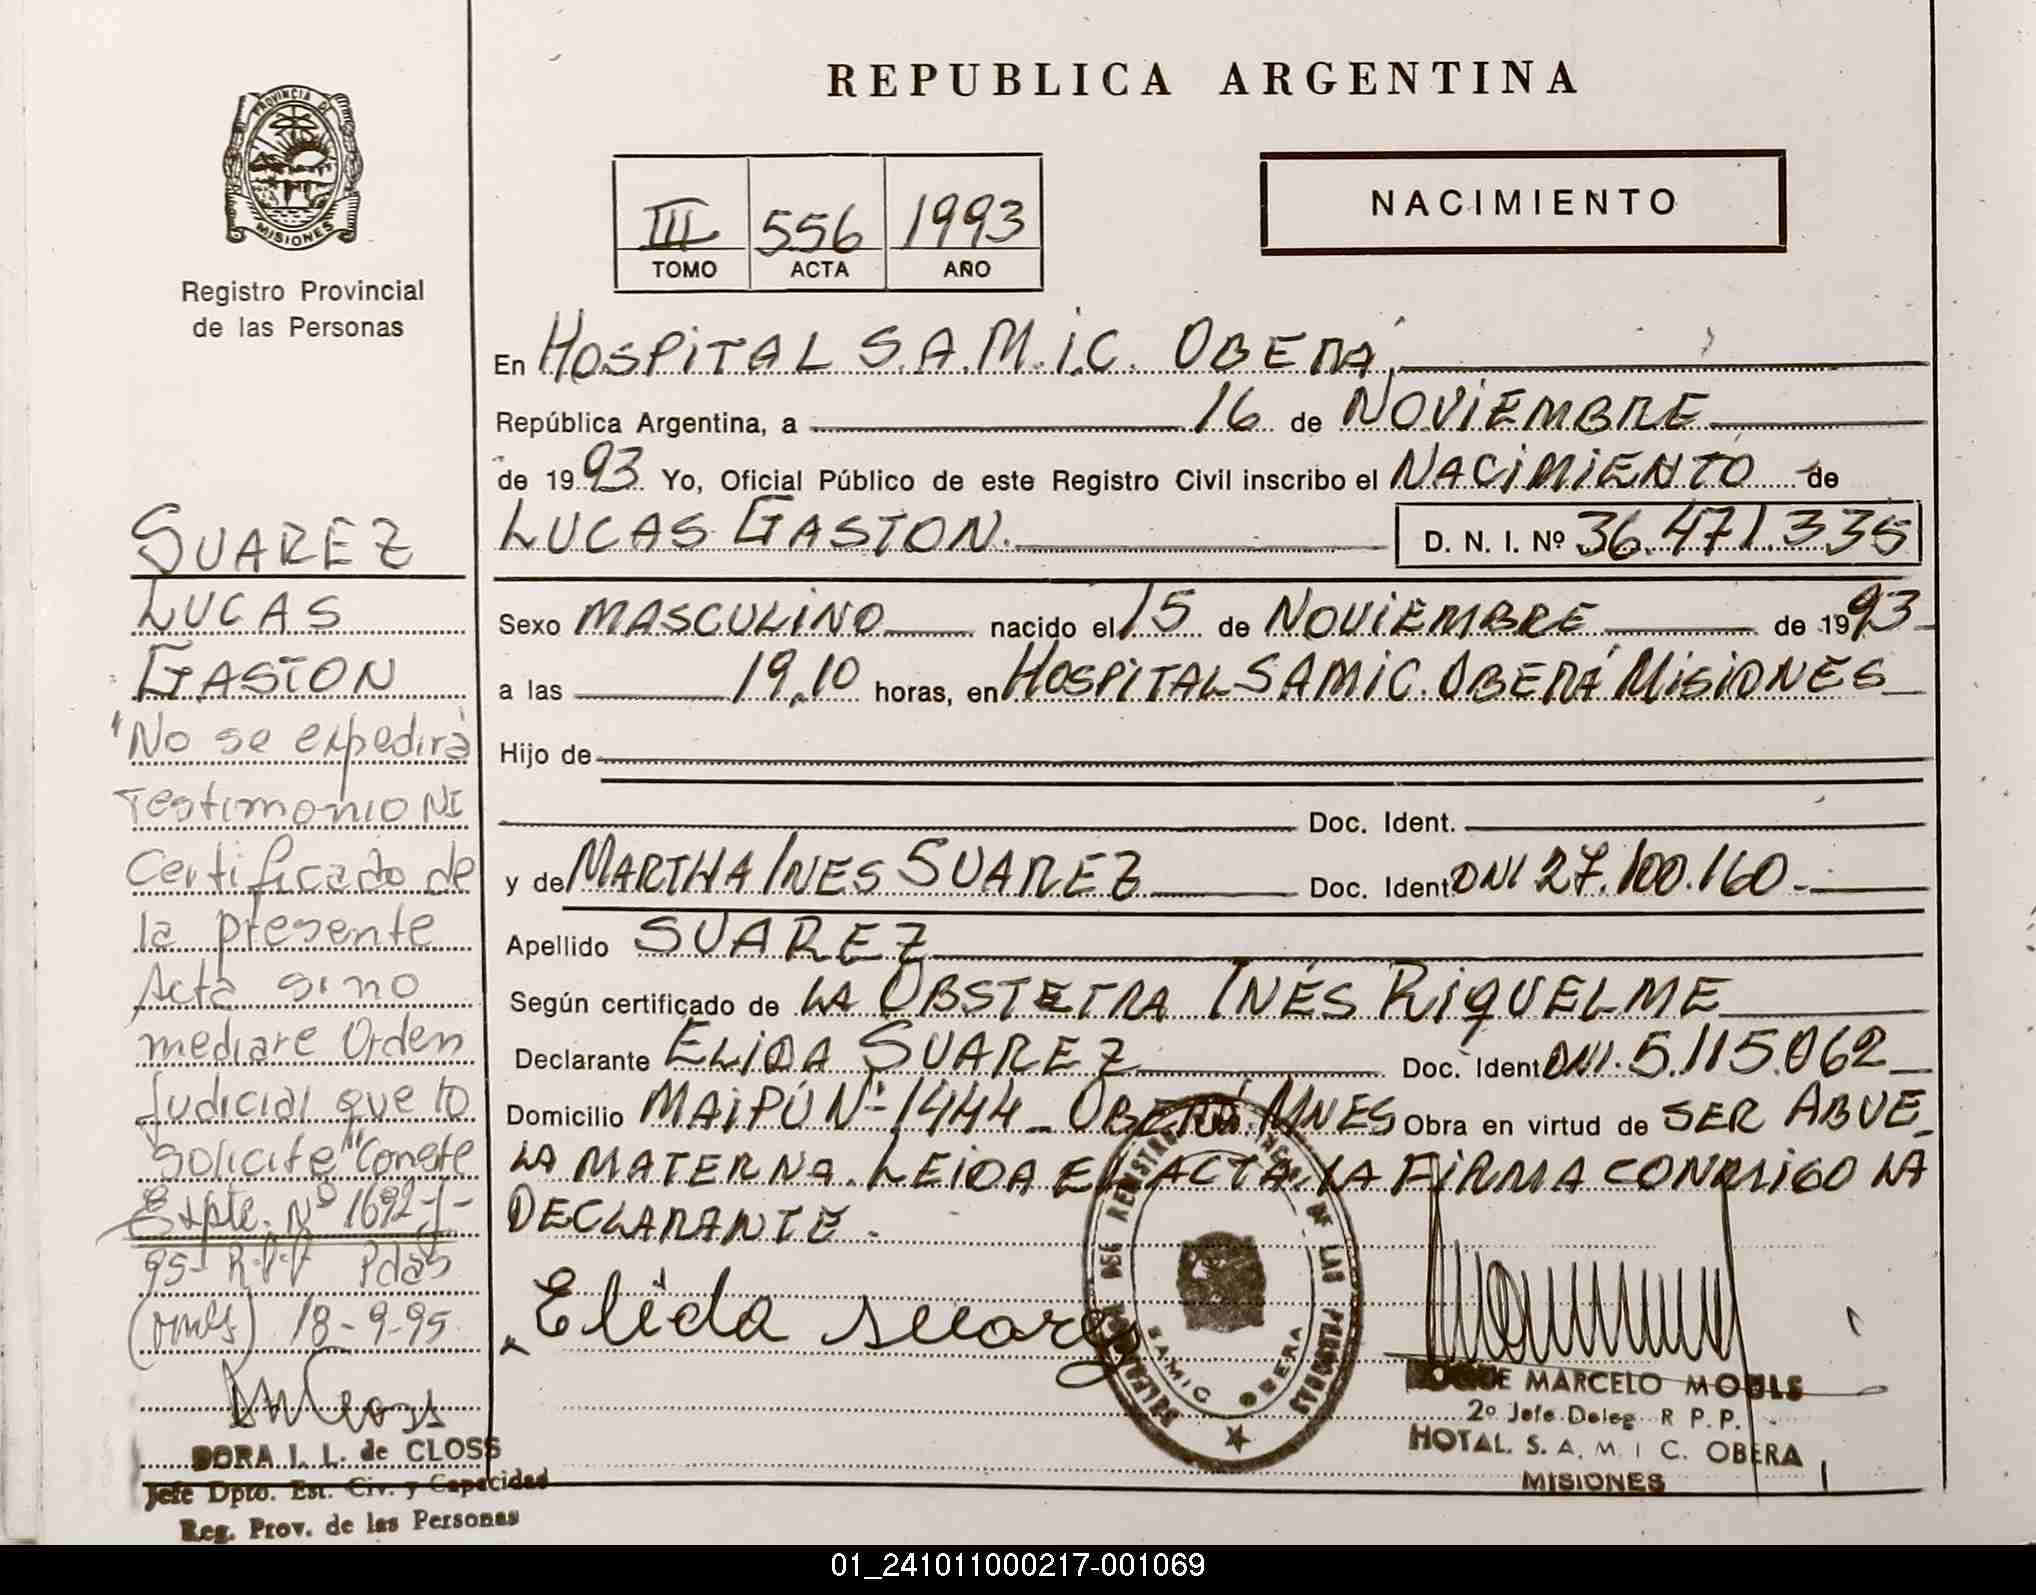 REPUBLICA ARGENTINA
PROVINCIA DE
MISIONES
Registro Provincial
de las Personas
III 556 1993
TOMO ACTA AÑO
NACIMIENTO
SUAREZ
LUCAS
GASTON
"No se expedirá
Testimonio NI
Certificado de
la presente
Acta si no
mediare Orden
Judicial que lo
solicite" Conste
Expte. Nº 1692-J-
95- R.P.P Pdas
18-9-95
DORA I. L. de CLOSS
Jefe Dpto. Est. Civ. y Capacidad
Reg. Prov. de las Personas
En HOSPITAL S.A.M.I.C. OBERÁ
República Argentina, a 16 de NOVIEMBRE
de 1993 Yo, Oficial Público de este Registro Civil inscribo el NACIMIENTO de
LUCAS GASTON. D. N. I. Nº 36.471.335
Sexo MASCULINO nacido el 15 de NOVIEMBRE de 1993
a las 19,10 horas, en HOSPITAL SAMIC. OBERÁ MISIONES
Hijo de
Doc. Ident.
y de MARTHA INES SUAREZ Doc. Ident DNI 27.100.160.-
Apellido SUAREZ
Según certificado de LA OBSTETRA INÉS RIQUELME
Declarante ELIDA SUAREZ Doc. Ident DNI. 5.115.062
Domicilio MAIPÚ Nº 1444 - OBERÁ. MNES Obra en virtud de SER ABUE-
LA MATERNA. LEIDA EL ACTA. LA FIRMA CONMIGO LA
DECLARANTE.-
Elida suarez
DE LAS PERSONAS
SAMIC OBERA
MARCELO
2º Jefe Deleg. R P. P.
HOTAL. S. A. M. I C. OBERA
MISIONES
01_241011000217-001069